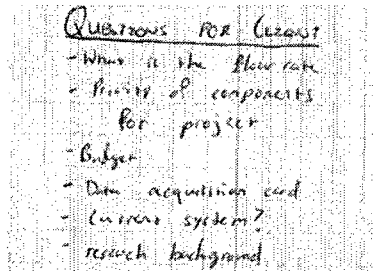 QUESTIONS FOR CLIENT
- What is the flow rate
- Priority of components
for project
- Budget
- Data acquisition card
- Current system?
- research background